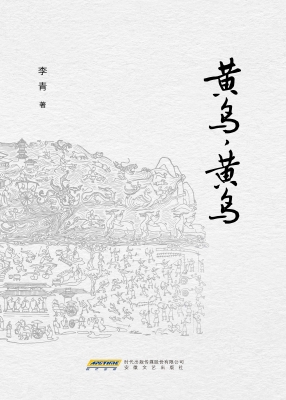 黄鸟,黄鸟
李青 著
时代出版传媒股份有限公司
安徽文艺出版社